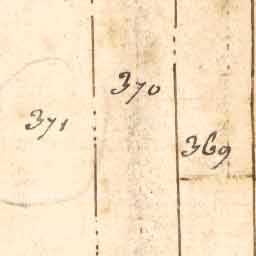 370
371
369